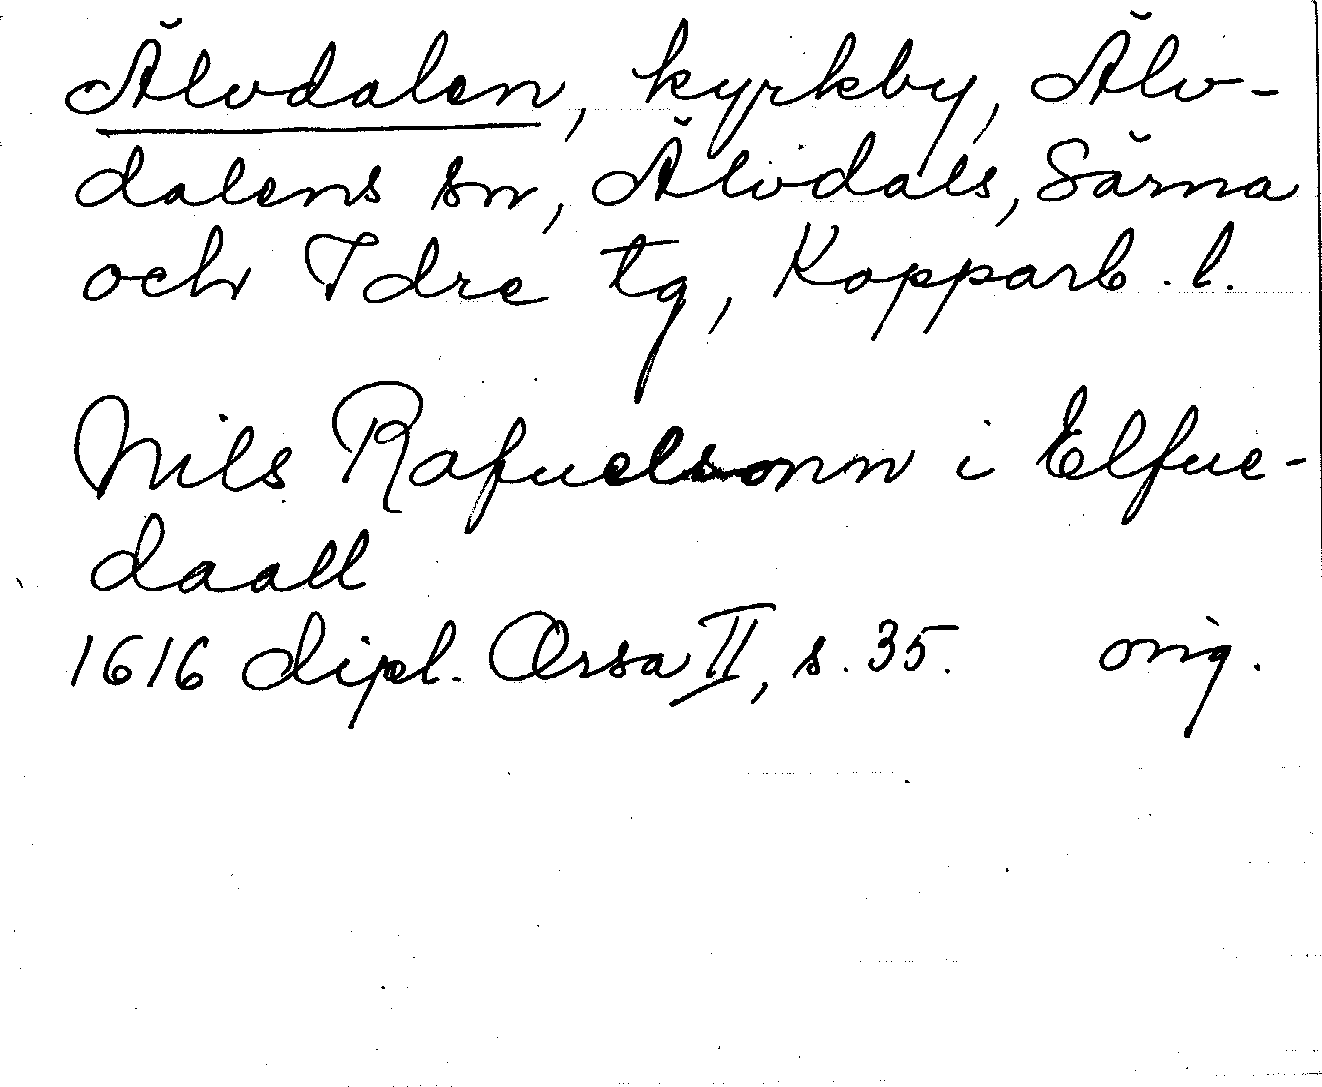 Älvdalen, kyrkby, Älv-
dalens sn, Älvdals, Särna
och Idre tg, Kopparb. l.
Nils Rafuelsonn i Elfue-
daall
1616 dipl. Orsa II, s. 35. orig.